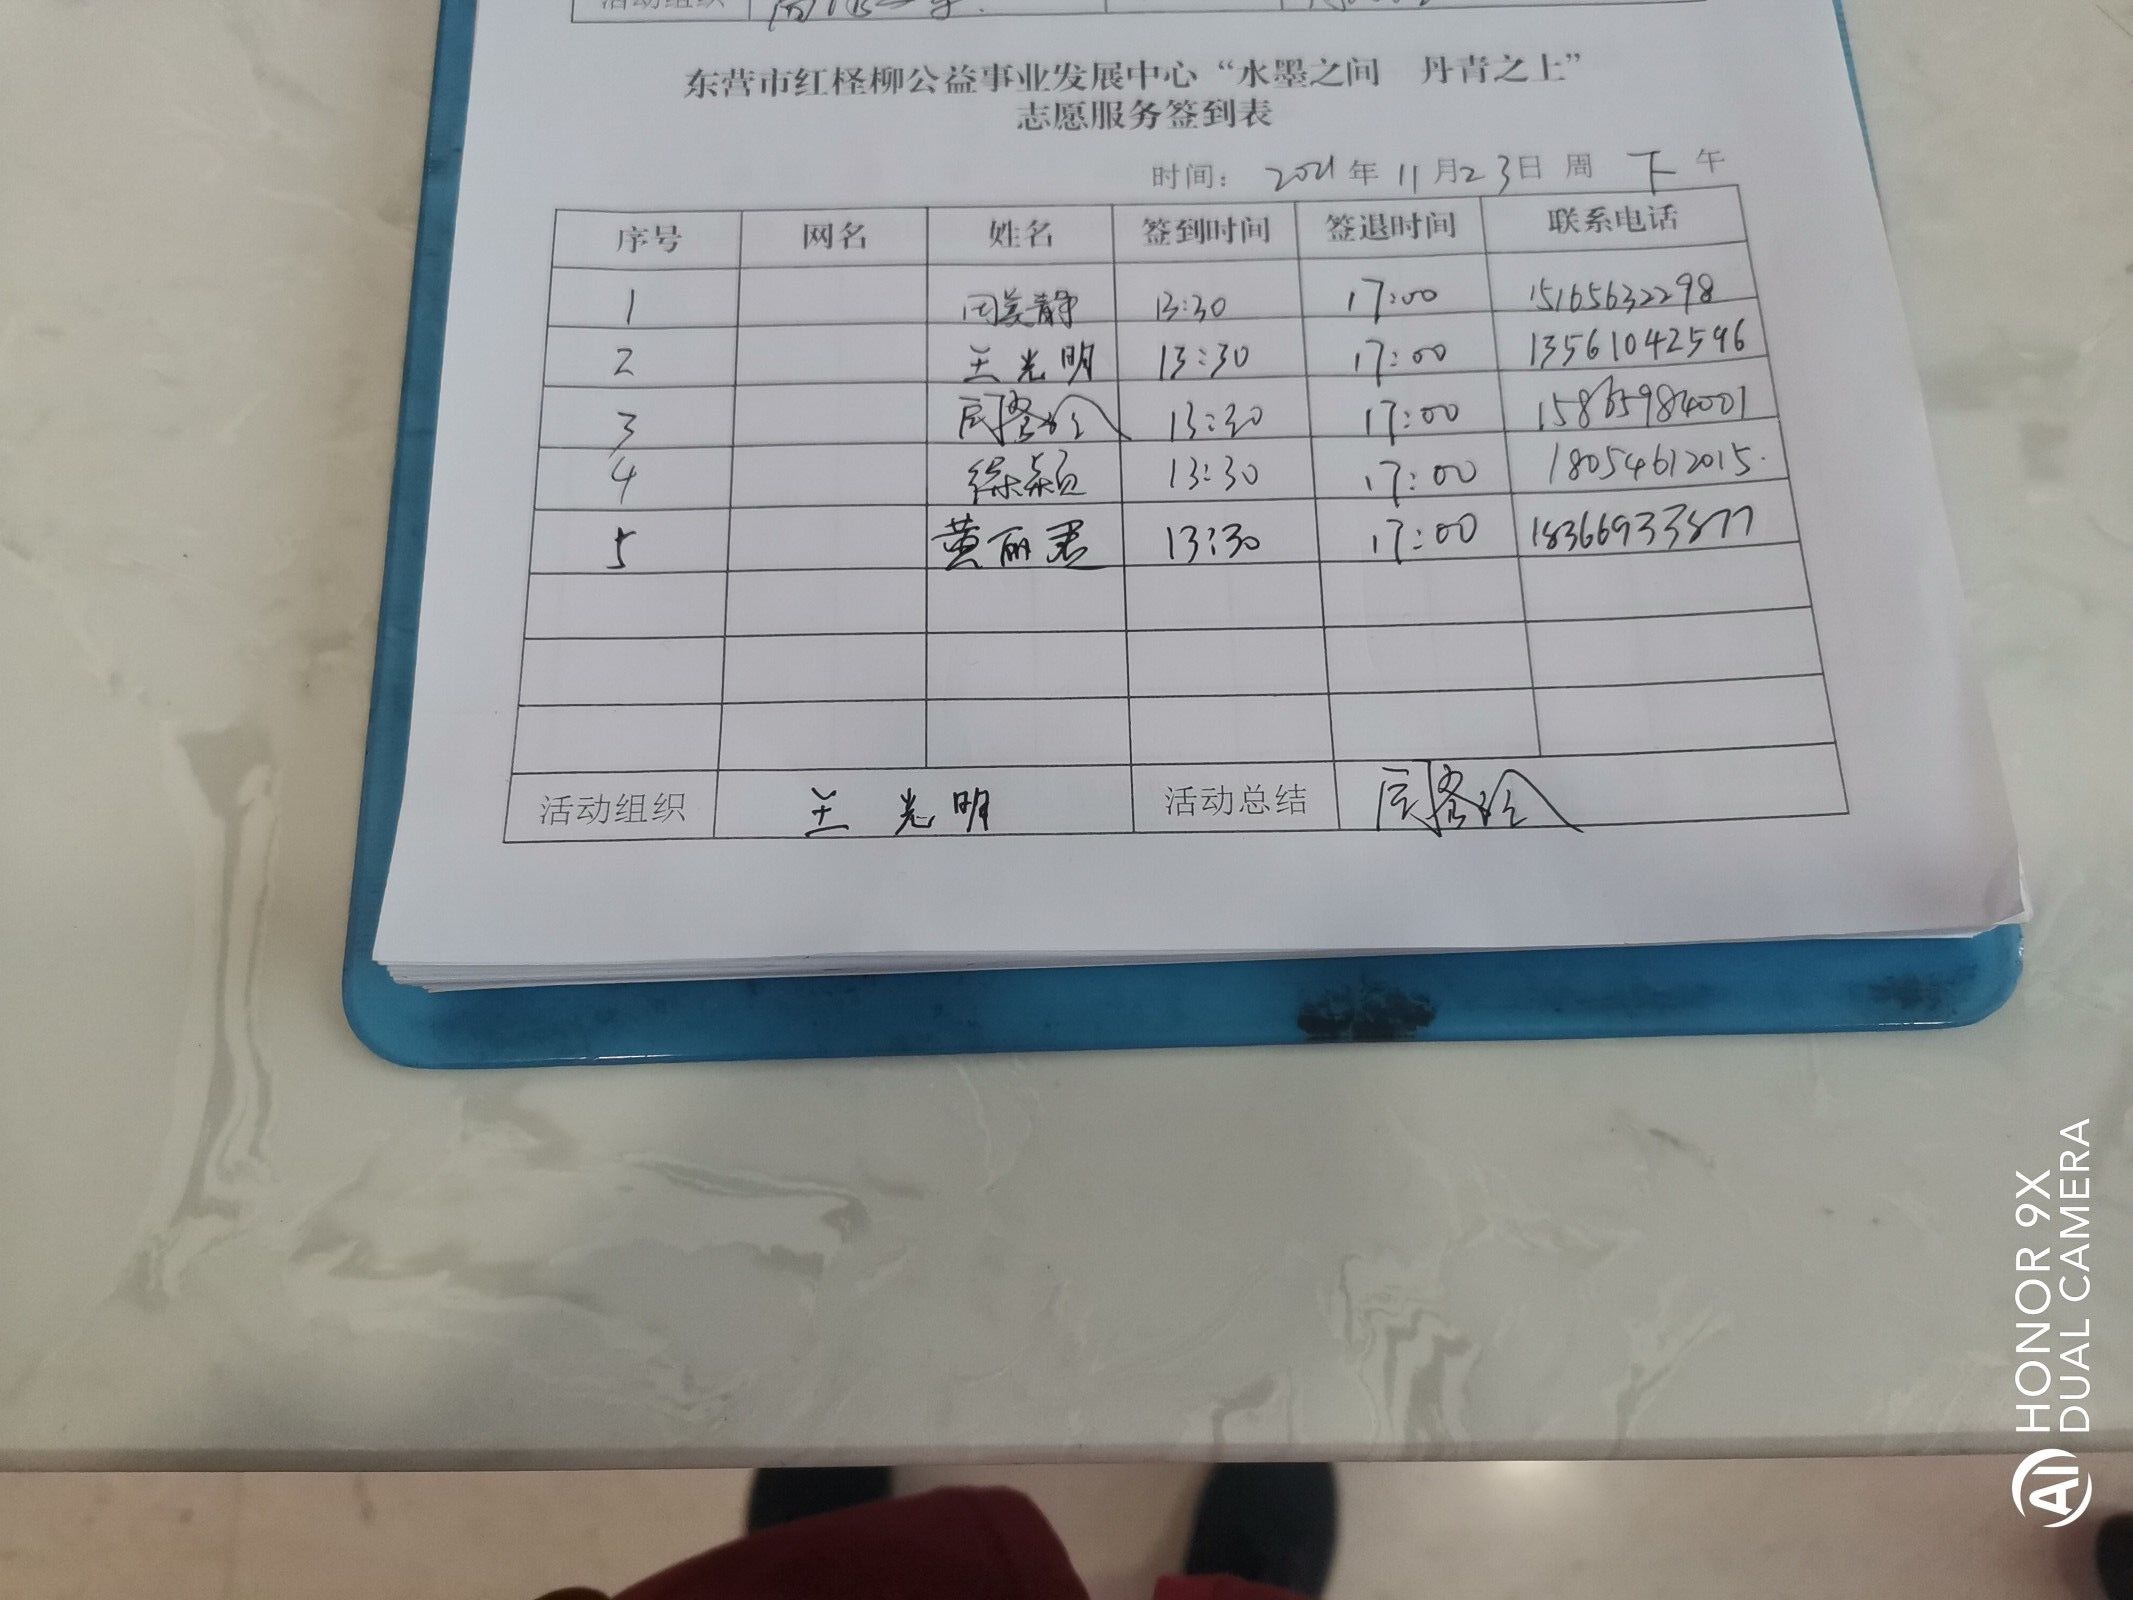 活动组织
东营市红柽柳公益事业发展中心“水墨之间 丹青之上”
志愿服务签到表
时间： 2021年 11月23日 周 下午
序号 网名 姓名 签到时间 签退时间 联系电话
1 周美静 13:30 17:00 15165632298
2 王光明 13:30 17:00 13561042596
3 13:30 17:00 15865984001
4 徐颖 13:30 17:00 18054612015.
5 黄丽君 13:30 17:00 18366933877
活动组织 王光明 活动总结
HONOR 9X
DUAL CAMERA
AI